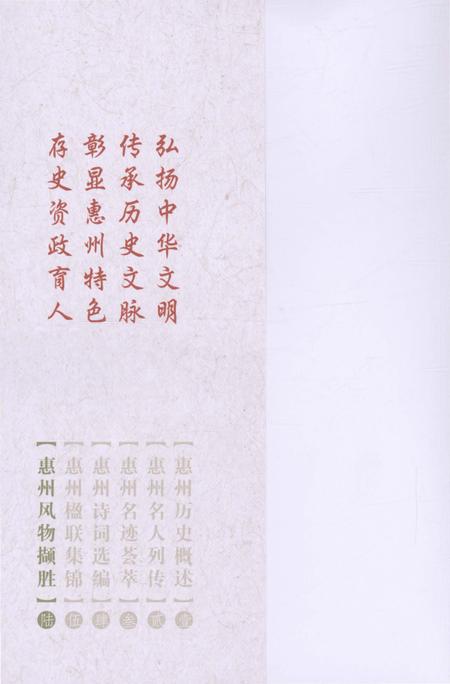 弘扬中华文明
传承历史文脉
彰显惠州特色
存史资政育人
【惠州历史概述】壹
【惠州名人列传】贰
【惠州名迹荟萃】叁
【惠州诗词选编】肆
【惠州楹联集锦】伍
【惠州风物撷胜】陆